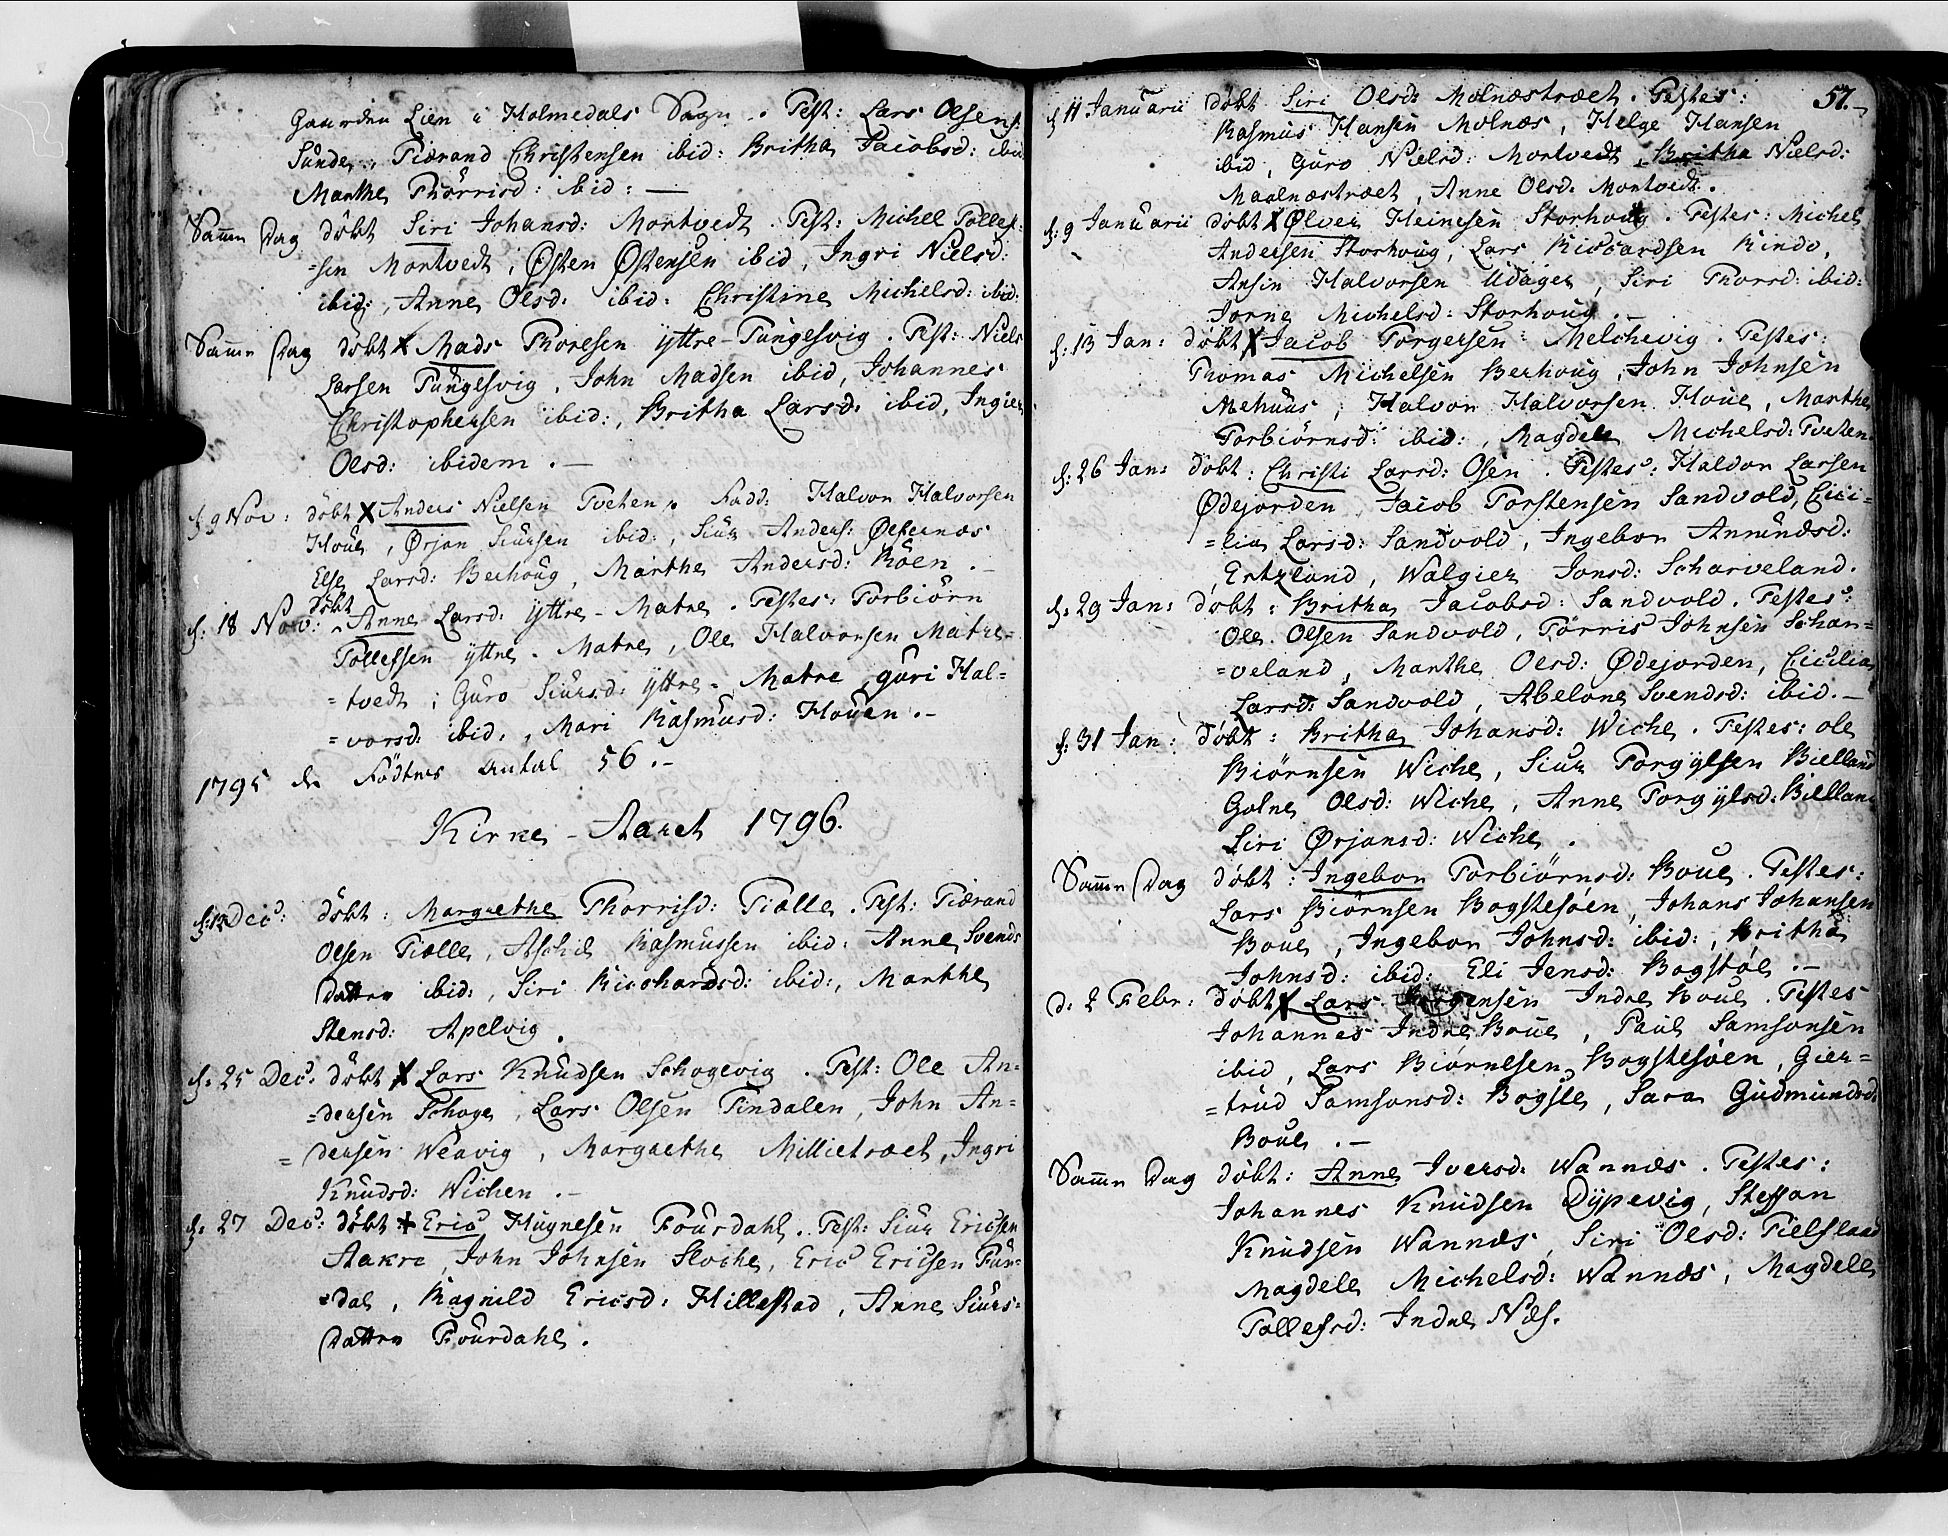 Gaarden Lien i Holmedals Sogn. Test: Lars Olsen
Sunde, Tiærand Christensen ibid: Britha Jacobsd: ibid
Marthe Thorrisd: ibid: —
Samme Dag döbt Siri Johansd: Mortvedt. Test: Michel Tollef-
=sen Mortvedt, Østen Østensen ibid, Ingri Nielsd:
ibid:, Anne Olsd: ibid: Christine Michelsd: ibid:
Samme Dag döbt X Mads Thoresen yttre-Tungesvig. Test: Niels
Larsen Tungesvig, John Madsen ibid, Johannes
Christophersen ibid:, Britha Larsd: ibid, Ingier
Olsd: ibidem. —
d. 9 Nov: döbt X Anders Nielsen Tveten. Fadd: Halvor Halvorsen
Houe, Ørjan Siursen ibid:, Siur Anders: Ølfernæs
Else Larsd: Berhoug, Marthe Andersd: Röen. —
döbt
d: 18 Nov: Anne Larsd: yttre-Matre. Testes: Torbiörn
Tollefsen yttre-Matre, Ole Halvorsen Matre-
=tvedt, Guro Siursd: yttre-Matre, guri Hal=
=vorsd: ibid., Mari Rasmusd: Houen. —
1795 de Födtes antal 56. —
Kirke-Aaret 1796.
Dec: döbt: Margrethe Thorrisd: Tiölle. Test: Tiærand
Olsen Tiölle, Aschil Rasmussen ibid: Anne Svends
Datter ibid:, Siri Richardsd: ibid:, Marthe
Stensd: Apelvig.
d: 25 Dec: döbt X Lars Knudsen Schogevig. Test: Ole An=
=dersen Schoge, Lars Olsen Tindalen, John An=
=dersen Weavig, Margrethe Millietræet, Ingri
Knudsd: Wichen. —
d: 27 Dec: döbt + Eric Hugnesen Fourdahl. Test: Siur Ericsen
Aakre, John Johnsen Sloche, Eric Ericsen Fur=
=dal, Ragnild Ericsd: Hillestad, Anne Siurs=
Datter Fourdahl.
57.
d 11 Januarii döbt Siri Olsd: Molnæstræet. Testes:
Rasmus Hansen Molnæs, Helge Hansen
ibid, Guro Nielsd: Mortvedt, Britha Nielsd:
Maalnæstræet, Anne Olsd: Mortvedt.
d: 9 Januarii döbt X Ølver Heinesen Storhoug. Testes: Michel
Andersen Storhoug, Lars Richardsen Rindo,
Ansin Halvorsen Udager, Siri Thorsd: ibid:
Jorne Michelsd: Storhoug. —
d: 13 Jan: döbt X Jacob Torgersen Melchevig. Testes:
Thomas Michelsen Berhoug, John Johnsen
Mehuus, Halvor Halvorsen Houe, Marthe
Torbiörnsd: ibid:, Magdele Michelsd: Tveten
d: 26 Jan: döbt: Christi Larsd: Osen. Testes: Haldor Larsen
Ødejorden, Jacob Torstensen Sandvold, Cici=
=lia Larsd: Sandvold, Ingebor Amundsd:
Ertzland, Walgier Jonsd: Scharveland.
d: 29 Jan: döbt: Britha Jacobsd: Sandvold. Testes:
Ole Olsen Sandvold, Törris Johnsen Schar=
=veland, Marthe Olsd: Ødejorden, Cicilia
Larsd: Sandvold, Abelone Svendsd: ibid. —
d: 31 Jan: döbt: Britha Johansd: Wiche. Testes: ole
Biörnsen Wiche, Siur Torgylsen Bielland
Golne Olsd: Wiche, Anne Torgylsd: Bielland
Siri Ørjansd: Wiche.
Samme Dag döbt: Ingebor Torbiörnsd: Boue. Testes:
Lars Biörnsen Bogstesöen, Johans Johansen
Boue, Ingebor Johnsd: ibid:, Britha
Johnsd: ibid: Eli Jensd: Bogstöl. —
d. 2 Febr: döbt X Lars Indre Boue. Testes
Johannes Indre Boue, Paul Samsonsen
ibid, Lars Biörnlsen Bogstesöen, Gier=
=trud Samsonsd: Bogste, Sara Gudmundsd:
Boue. —
Samme Dag döbt: Anne Iversd: Wannæs. Testes:
Johannes Knudsen Dypevig, Steffan
Knudsen Wannæs, Siri Olsd: Tielfland
Magdele Michelsd: Wannæs, Magdele
Tollefsd: Indre Næs.